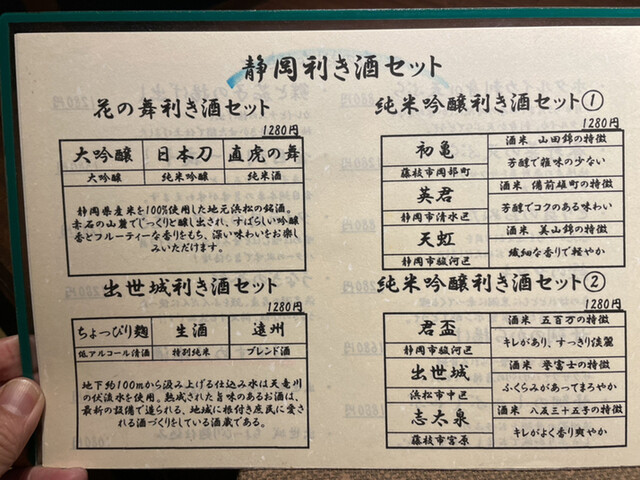 静岡利き酒セット
花の舞利き酒セット
1280円
大吟醸 日本刀 直虎の舞
大吟醸 純米吟醸 純米酒
静岡県産米を100%使用した地元浜松の銘酒。
赤石の山麓でじっくりと醸し出され、すばらしい吟醸
香とフルーティーな香りをもち、深い味わいをお楽し
みいただけます。
出世城利き酒セット
1280円
ちょっぴり麹 生酒 遠州
低アルコール清酒 特別純米 ブレンド酒
地下約100mから汲み上げる仕込み水は天竜川
の伏流水を使用。熟成された旨味のあるお酒は、
最新の設備で造られる、地域に根付き庶民に愛さ
れる酒づくりをしている酒蔵である。
純米吟醸利き酒セット①
1280円
初亀
藤枝市岡部町
酒米 山田錦の特徴
芳醇で雑味の少ない
英君
静岡市清水区
酒米 備前雄町の特徴
芳醇でコクのある味わい
天虹
静岡市駿河区
酒米 美山錦の特徴
繊細な香りで軽やか
純米吟醸利き酒セット②
1280円
君盃
静岡市駿河区
酒米 五百万の特徴
キレがあり、すっきり淡麗
出世城
浜松市中区
酒米 誉富士の特徴
ふくらみがあってまろやか
志太泉
藤枝市宮原
酒米 八反三十五号の特徴
キレがよく香り爽やか